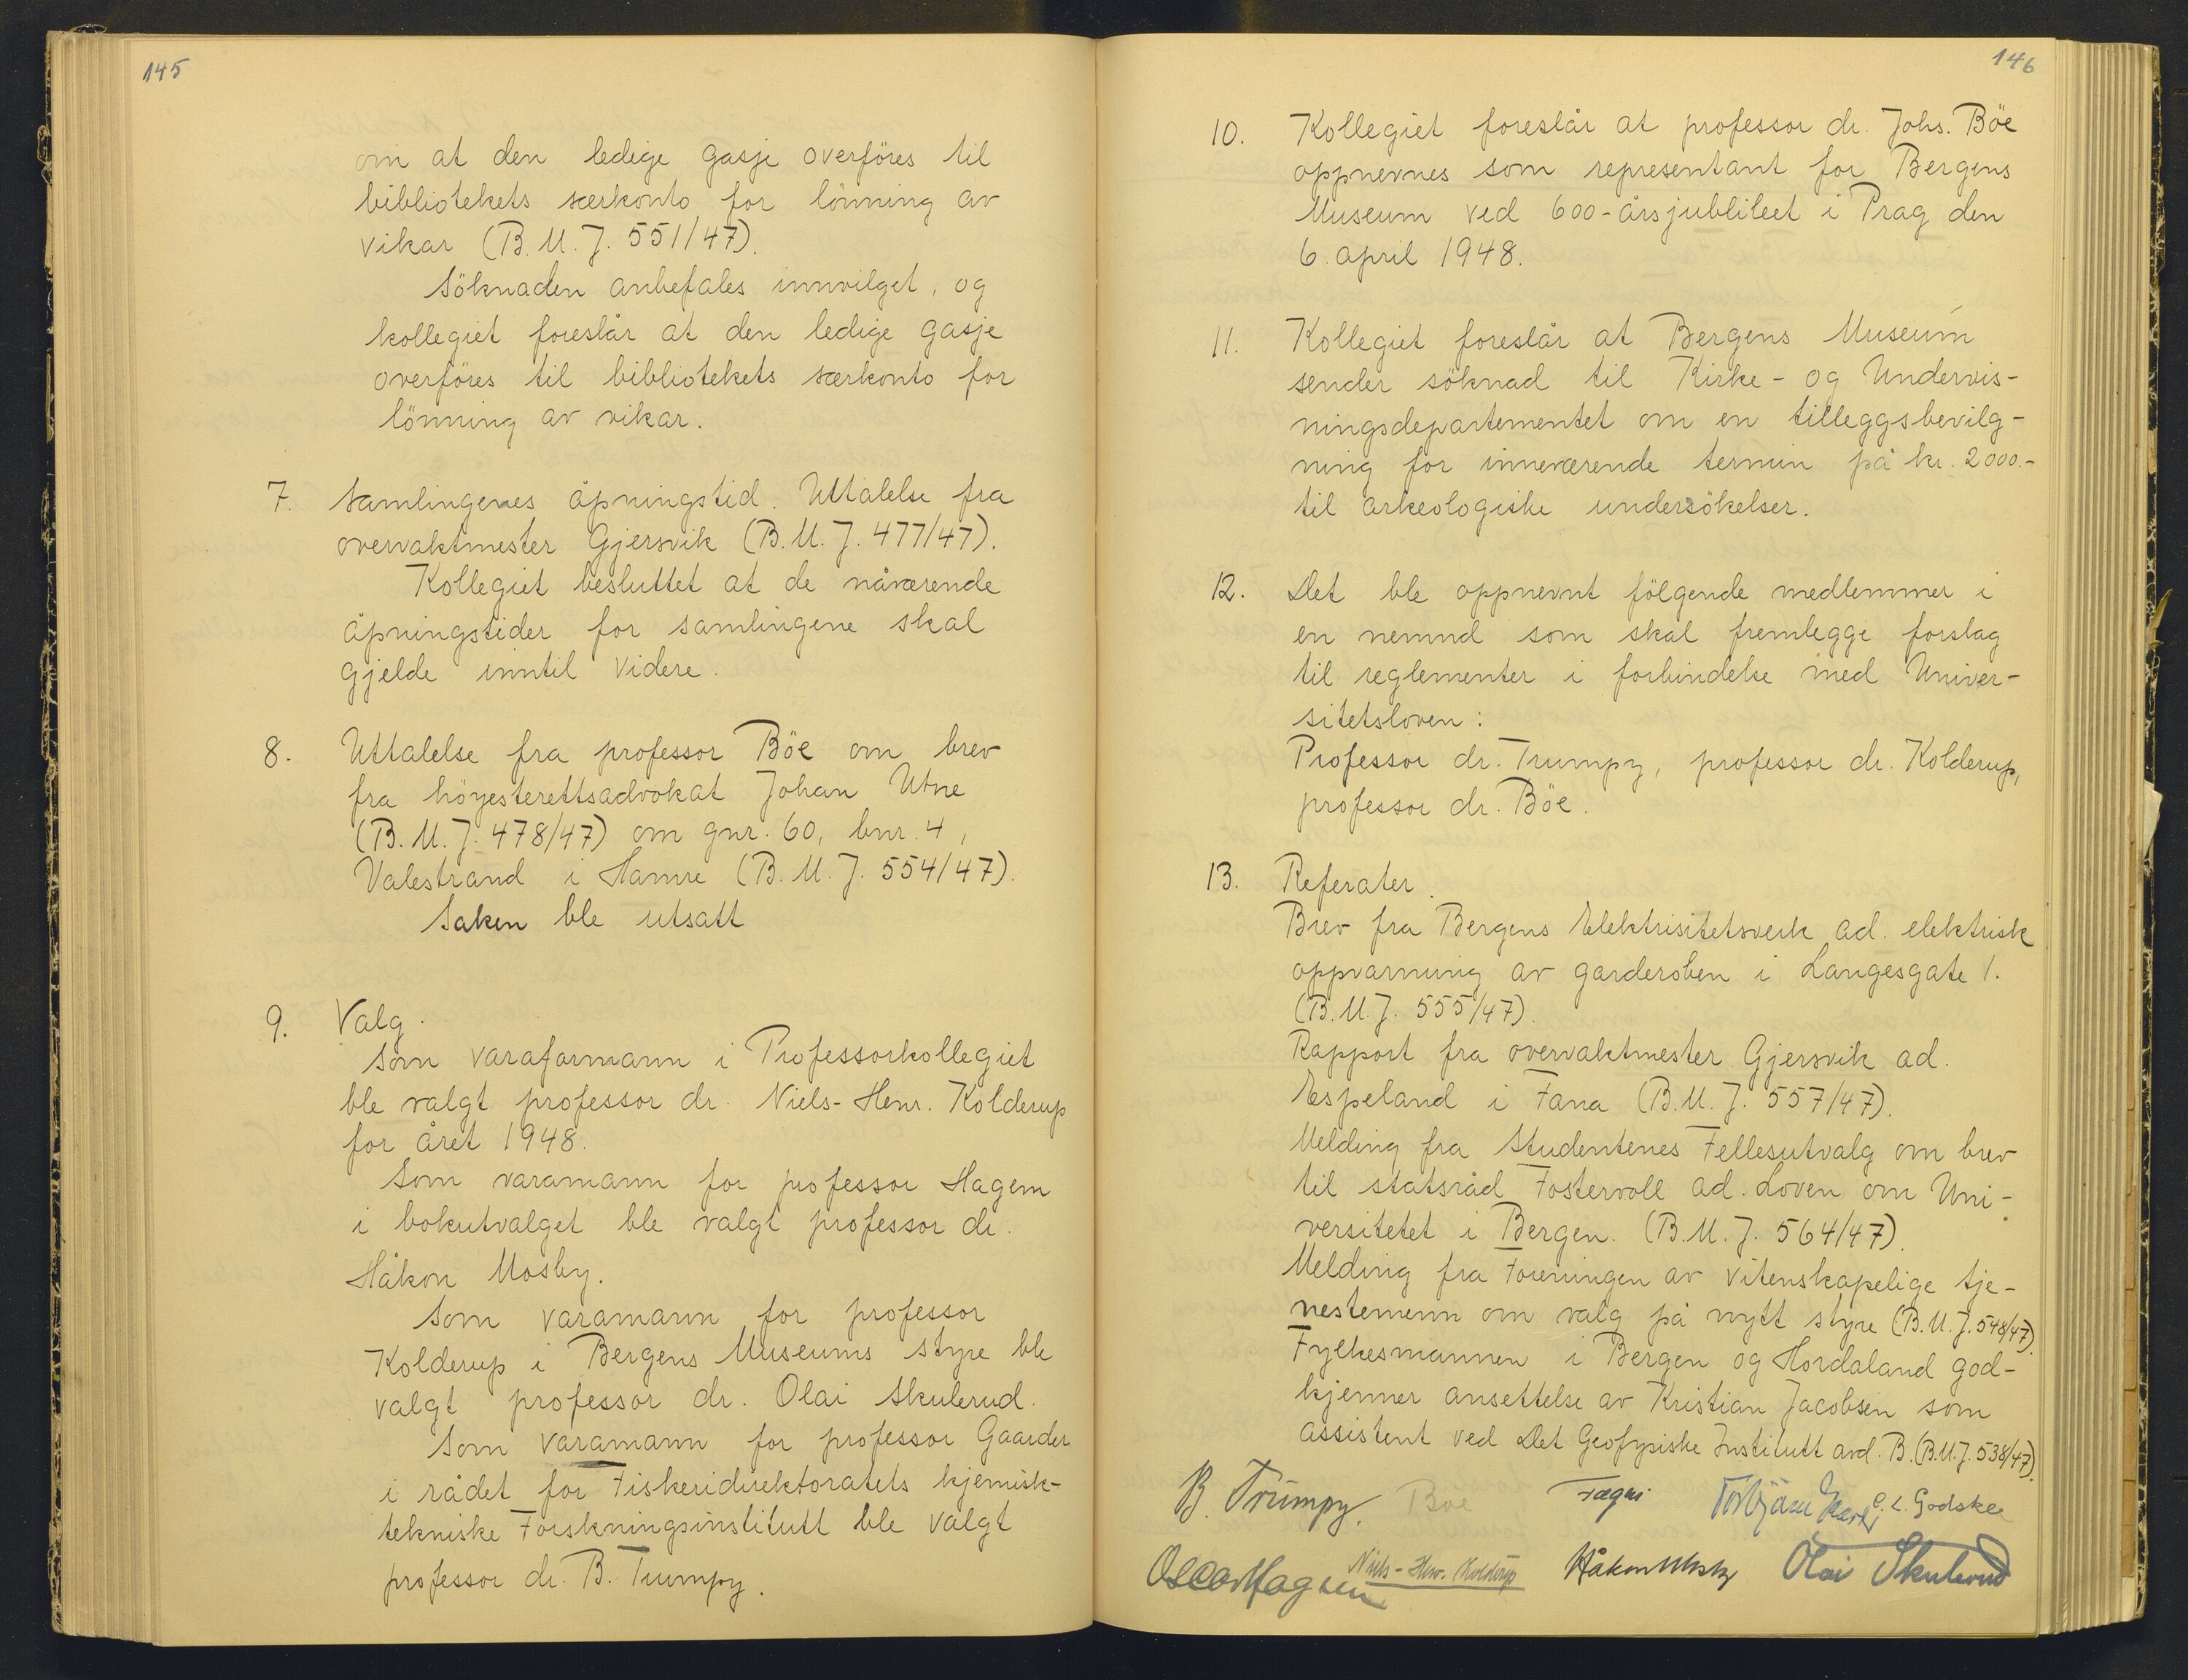 145
om at den ledige gasje overföres til
bibliotekets særkonto for lönning av
vikar (B.M.J. 551/47).
Söknaden anbefales innvilget, og
kollegiet foreslår at den ledige gasje
overföres til bibliotekets særkonto for
lönning av vikar.
7. Samlingenes åpningstid. Uttalelse fra
overvaktmester Gjersvik (B.M.J. 477/47).
Kollegiet besluttet at de nåværende
åpningstider for samlingene skal
gjelde inntil videre.
8. Uttalelse fra professor Böe om brev
fra höyesterettsadvokat Johan Utne
(B.M.J. 478/47) om gnr. 60, bnr. 4,
Valestrand i Hamre (B.M.J. 554/47).
Saken ble utsatt
9. Valg.
Som varaformann i Professorkollegiet
ble valgt professor dr. Niels-Henr. Kolderup
for året 1948.
Som varamann for professor Hagem
i bokutvalget ble valgt professor dr.
Håkon Mosby.
Som varamann for professor
Kolderup i Bergens Museums styre ble
valgt professor dr. Olai Skulerud.
Som varamann for professor Gaarder
i rådet for Fiskeridirektoratets kjemisk-
tekniske Forskningsinstitutt ble valgt
professor dr. B. Trumpy.
146
10. Kollegiet foreslår at professor dr. Johs. Böe
oppnevnes som representant for Bergens
Museum ved 600-årsjublileet i Prag den
6. april 1948.
11. Kollegiet foreslår at Bergens Museum
sender söknad til Kirke- og Undervis-
ningsdepartementet om en tilleggsbevilg-
ning for inneværende termin på kr. 2000.-
til arkeologiske undersökelser.
12. Det ble oppnevnt fölgende medlemmer i
en nemnd som skal fremlegge forslag
til reglementer i forbindelse med Univer-
sitetsloven:
Professor dr. Trumpy, professor dr. Kolderup,
professor dr. Böe.
13. Referater.
Brev fra Bergens Elektrisitetsverk ad. elektrisk
oppvarming av garderoben i Langesgate 1.
(B.M.J. 555/47).
Rapport fra overvaktmester Gjersvik ad.
Espeland i Fana (B.M.J. 557/47).
Melding fra Studentenes Fellesutvalg om brev
til statsråd Fostervoll ad. Loven om Uni-
versitetet i Bergen. (B.M.J. 564/47).
Melding fra Foreningen av vitenskapelige tje-
nestemenn om valg på nytt styre (B.M.J. 548/47).
Fylkesmannen i Bergen og Hordaland god-
kjenner ansettelse av Kristian Jacobsen som
assistent ved Det Geofysiske Institutt avd. B. (B.M.J. 538/47).
B. Trumpy. Böe Fægri Torbjørn C. L. Godske
Oscar Hagem Niels-Henr. Kolderup Håkon Mosby Olai Skulerud